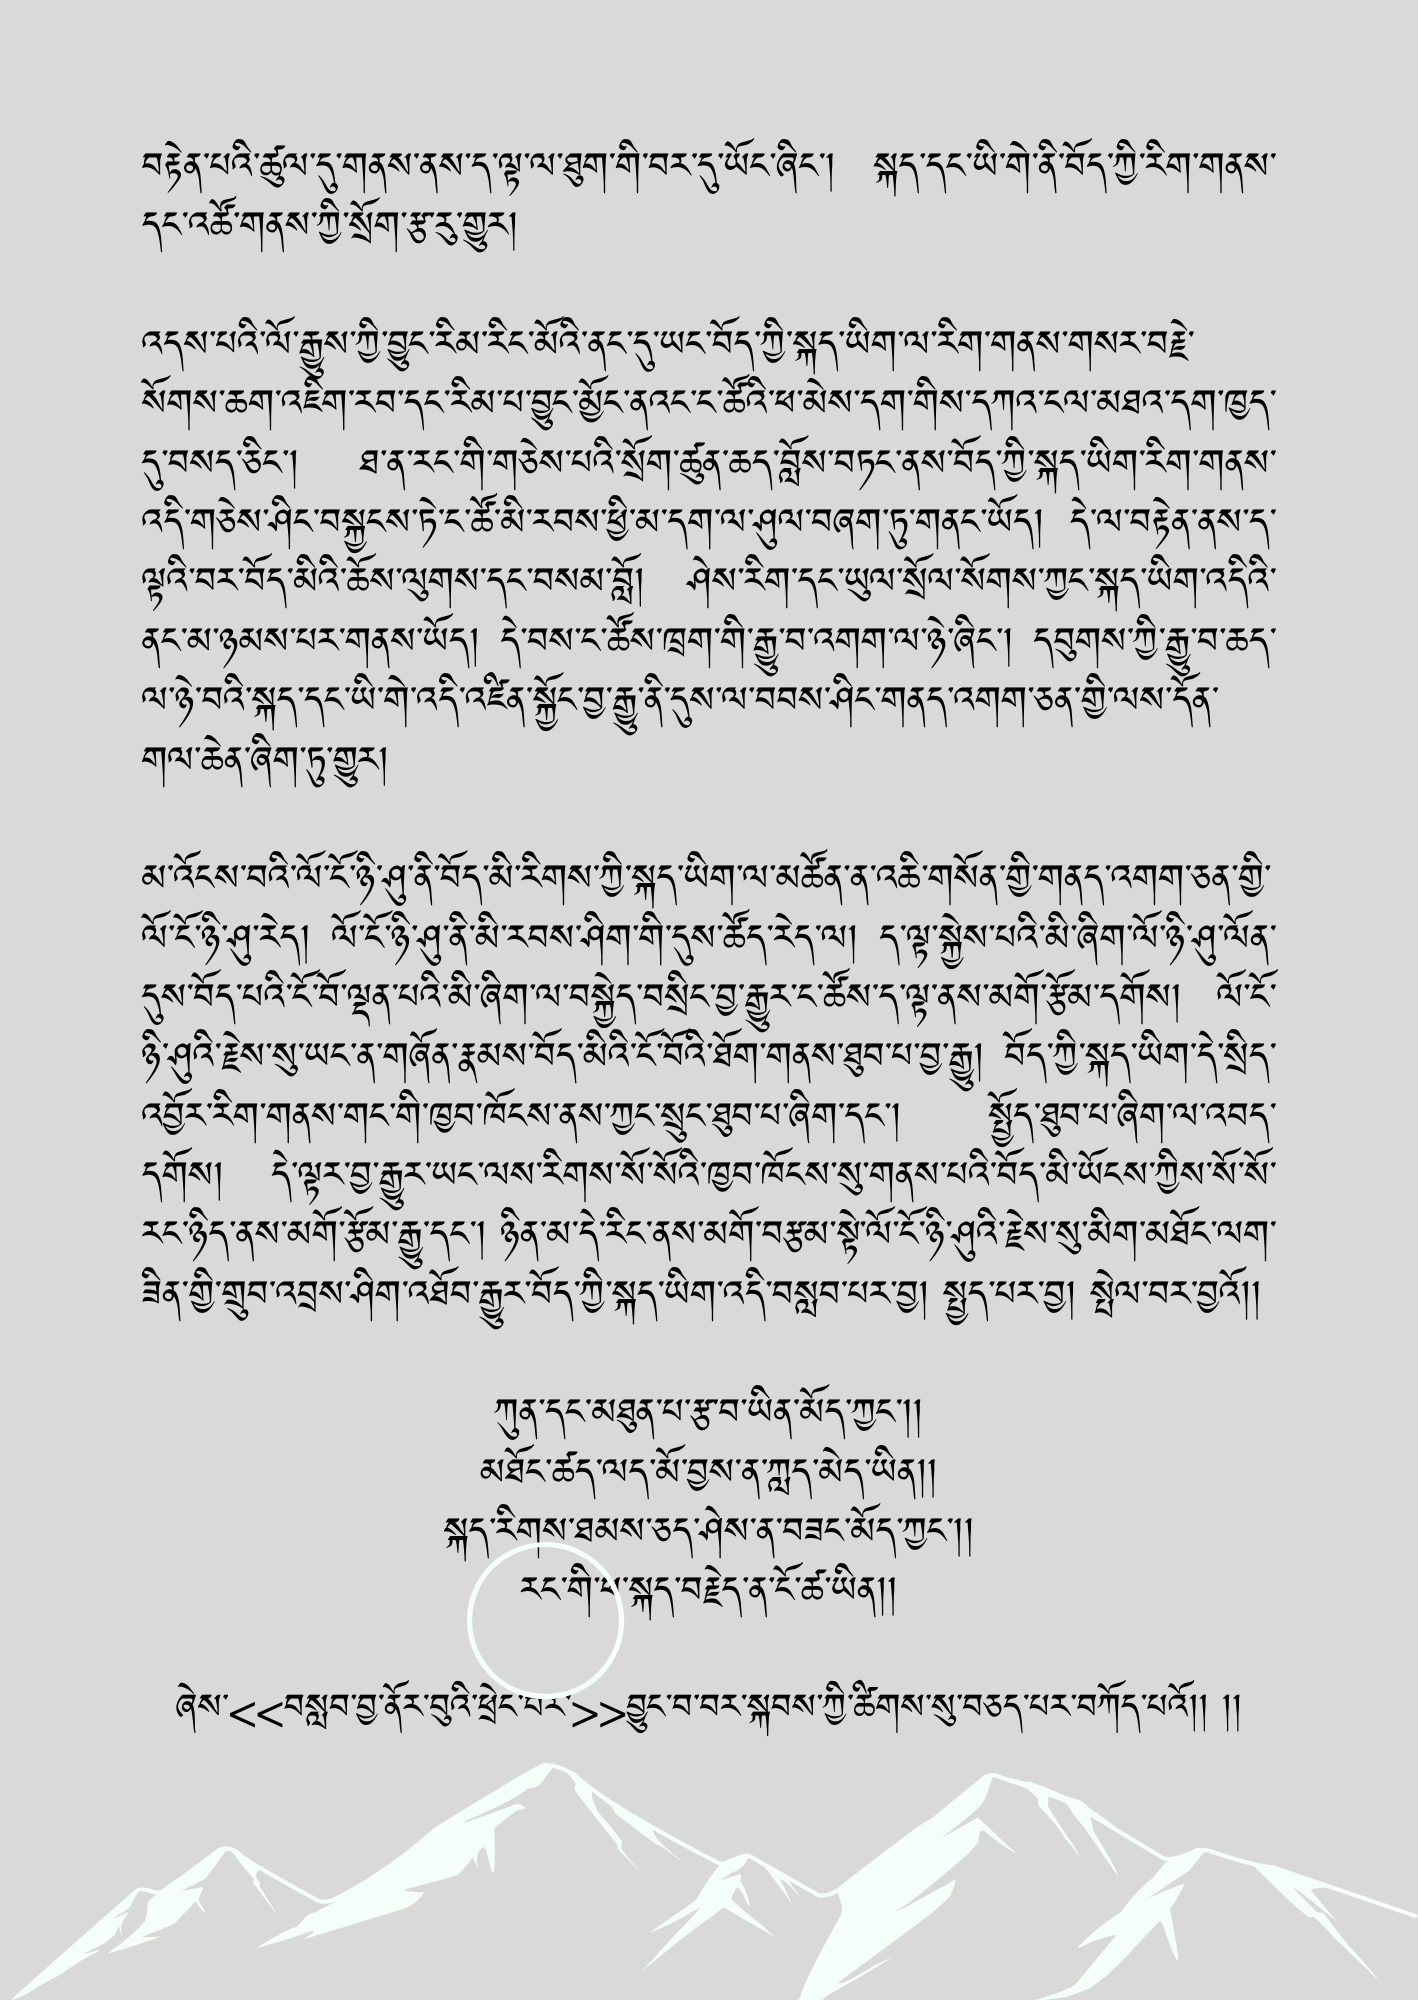 བརྟེན་པའི་ཚུལ་དུ་གནས་ནས་ད་ལྟ་ལ་ཐུག་གི་བར་དུ་ཡོང་ཞིང་། སྐད་དང་ཡི་གེ་ནི་བོད་ཀྱི་རིག་གནས་
དང་འཚོ་གནས་ཀྱི་སྲོག་རྩ་རུ་གྱུར།
འདས་པའི་ལོ་རྒྱུས་ཀྱི་བྱུང་རིམ་རིང་མོའི་ནང་དུ་ཡང་བོད་ཀྱི་སྐད་ཡིག་ལ་རིག་གནས་གསར་བརྗེ་
སོགས་ཆག་འཇིག་རབ་དང་རིམ་པ་བྱུང་མྱོང་ནའང་ང་ཚོའི་ཕ་མེས་དག་གིས་དཀའ་ངལ་མཐའ་དག་ཁྱད་
དུ་བསད་ཅིང་། ཐ་ན་རང་གི་གཅེས་པའི་སྲོག་ཚུན་ཆད་བློས་བཏང་ནས་བོད་ཀྱི་སྐད་ཡིག་རིག་གནས་
འདི་གཅེས་ཤིང་བསྐྱངས་ཏེ་ང་ཚོ་མི་རབས་ཕྱི་མ་དག་ལ་ཤུལ་བཞག་ཏུ་གནང་ཡོད། དེ་ལ་བརྟེན་ནས་ད་
ལྟའི་བར་བོད་མིའི་ཆོས་ལུགས་དང་བསམ་བློ། ཤེས་རིག་དང་ཡུལ་སྲོལ་སོགས་ཀྱང་སྐད་ཡིག་འདིའི་
ནང་མ་ཉམས་པར་གནས་ཡོད། དེ་བས་ང་ཚོས་ཁྲག་གི་རྒྱུ་བ་འགག་ལ་ཉེ་ཞིང་། དབུགས་ཀྱི་རྒྱུ་བ་ཆད་
ལ་ཉེ་བའི་སྐད་དང་ཡི་གེ་འདི་འཛིན་སྐྱོང་བྱ་རྒྱུ་ནི་དུས་ལ་བབས་ཤིང་གནད་འགག་ཅན་གྱི་ལས་དོན་
གལ་ཆེན་ཞིག་ཏུ་གྱུར།
མ་འོངས་བའི་ལོ་ངོ་ཉི་ཤུ་ནི་བོད་མི་རིགས་ཀྱི་སྐད་ཡིག་ལ་མཚོན་ན་འཆི་གསོན་གྱི་གནད་འགག་ཅན་གྱི་
ལོ་ངོ་ཉི་ཤུ་རེད། ལོ་ངོ་ཉི་ཤུ་ནི་མི་རབས་ཤིག་གི་དུས་ཚོད་རེད་ལ། ད་ལྟ་སྐྱེས་པའི་མི་ཞིག་ལོ་ཉི་ཤུ་ལོན་
དུས་བོད་པའི་ངོ་བོ་ལྡན་པའི་མི་ཞིག་ལ་བསྐྱེད་བསྲིང་བྱ་རྒྱུར་ང་ཚོས་ད་ལྟ་ནས་མགོ་རྩོམ་དགོས། ལོ་ངོ་
ཉི་ཤུའི་རྗེས་སུ་ཡང་ན་གཞོན་རྣམས་བོད་མིའི་ངོ་བོའི་ཐོག་གནས་ཐུབ་པ་བྱ་རྒྱུ། བོད་ཀྱི་སྐད་ཡིག་དེ་སྲིད་
འབྱོར་རིག་གནས་གང་གི་ཁྱབ་ཁོངས་ནས་ཀྱང་སྲུང་ཐུབ་པ་ཞིག་དང་། སྤྱོད་ཐུབ་པ་ཞིག་ལ་འབད་
དགོས། དེ་ལྟར་བྱ་རྒྱུར་ཡང་ལས་རིགས་སོ་སོའི་ཁྱབ་ཁོངས་སུ་གནས་པའི་བོད་མི་ཡོངས་ཀྱིས་སོ་སོ་
རང་ཉིད་ནས་མགོ་རྩོམ་རྒྱུ་དང་། ཉིན་མ་དེ་རིང་ནས་མགོ་བརྩམ་སྟེ་ལོ་ངོ་ཉི་ཤུའི་རྗེས་སུ་མིག་མཐོང་ལག་
ཟིན་གྱི་གྲུབ་འབྲས་ཤིག་འཐོབ་རྒྱུར་བོད་ཀྱི་སྐད་ཡིག་འདི་བསླབ་པར་བྱ། སྤྱད་པར་བྱ། སྤེལ་བར་བྱའོ།།
ཀུན་དང་མཐུན་པ་རྩ་བ་ཡིན་མོད་ཀྱང་།།
མཐོང་ཚད་ལད་མོ་བྱས་ན་ཀླད་མེད་ཡིན།།
སྐད་རིགས་ཐམས་ཅད་ཤེས་ན་བཟང་མོད་ཀྱང་།།
རང་གི་ཕ་སྐད་བརྗེད་ན་ངོ་ཚ་ཡིན།།
ཞེས་<<བསླབ་བྱ་ནོར་བུའི་ཕྲེང་བར་>>བྱུང་བ་བར་སྐབས་ཀྱི་ཚིགས་སུ་བཅད་པར་བཀོད་པའོ།། །།